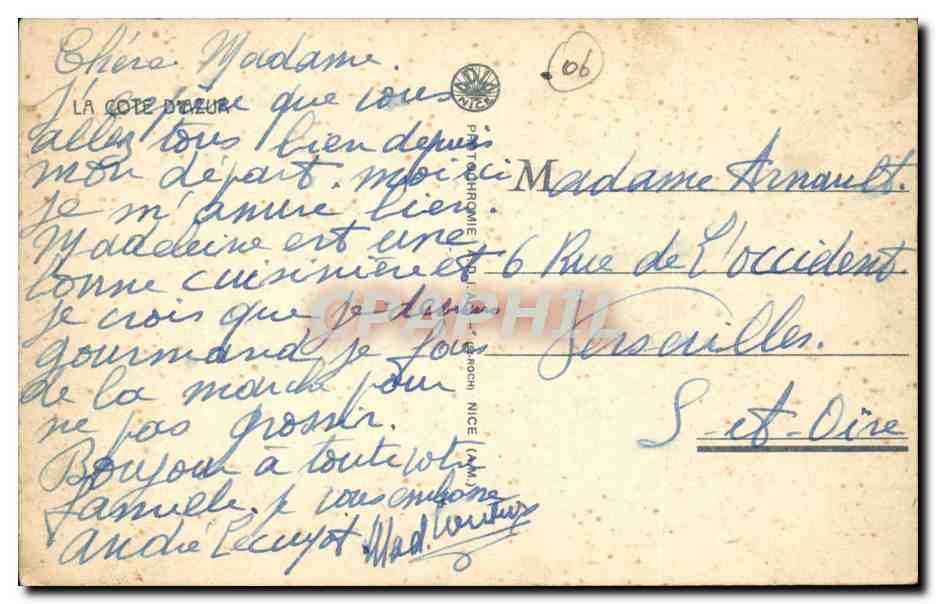 Chére Madame.
LA COTE D'AZUR
J'espère que vous
allez tous bien depuis
mon départ. moi ici
je m'amuse bien.
Madeleine est une
bonne cuisinière et
je crois que je deviens
gourmand, je fais
de la marche pour
ne pas grossir.
Bonjour à toute votre
famille. je vous embrasse
André Lecuyot Mad.
ADIA
NICE
PHOTOCHROMIE
(S-ROCH) NICE (A.M.)
06
Madame Arnault.
6 Rue de L'occident.
Versailles.
S-et-Oise
CPAPHIL